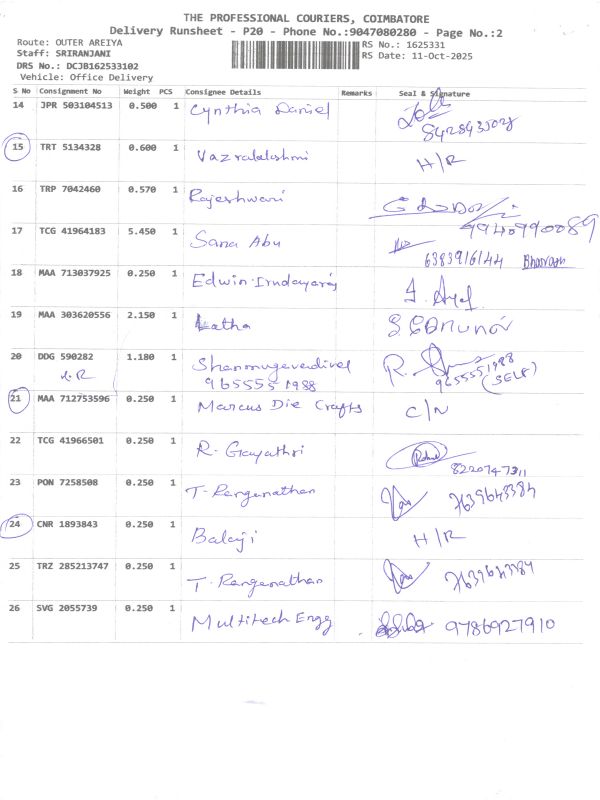 THE PROFESSIONAL COURIERS, COIMBATORE
Delivery Runsheet - P20 - Phone No.:9047080280 - Page No.:2
Route: OUTER AREIYA
RS No.: 1625331
Staff: SRIRANJANI
RS Date: 11-Oct-2025
DRS No.: DCJB162533102
Vehicle: Office Delivery
S No Consignment No Weight PCS Consignee Details Remarks Seal & Signature
14 JPR 503104513 0.500 1 Cynthia Daniel
15 TRT 5134328 0.600 1 Vazralakshmi H/R
16 TRP 7042460 0.570 1 Rajeshwari
9940990089
17 TCG 41964183 5.450 1 Sana Abu
6383916144 Bharath
18 MAA 713037925 0.250 1 Edwin Irudayaraj
19 MAA 303620556 2.150 1 Latha
20 DDG 590282 1.180 1 Shanmugavadivel R.
9655551988 9655551988
(SELF)
21 MAA 712753596 0.250 1 Marcus Die Crafts C/N
22 TCG 41966501 0.250 1 R. Gayathri
8220747311
23 PON 7258508 0.250 1 T. Ranganathan 7639643384
24 CNR 1893843 0.250 1 Balaji H/R
25 TRZ 285213747 0.250 1 T. Ranganathan 7639643384
26 SVG 2055739 0.250 1 Multitech Engg 9786927910